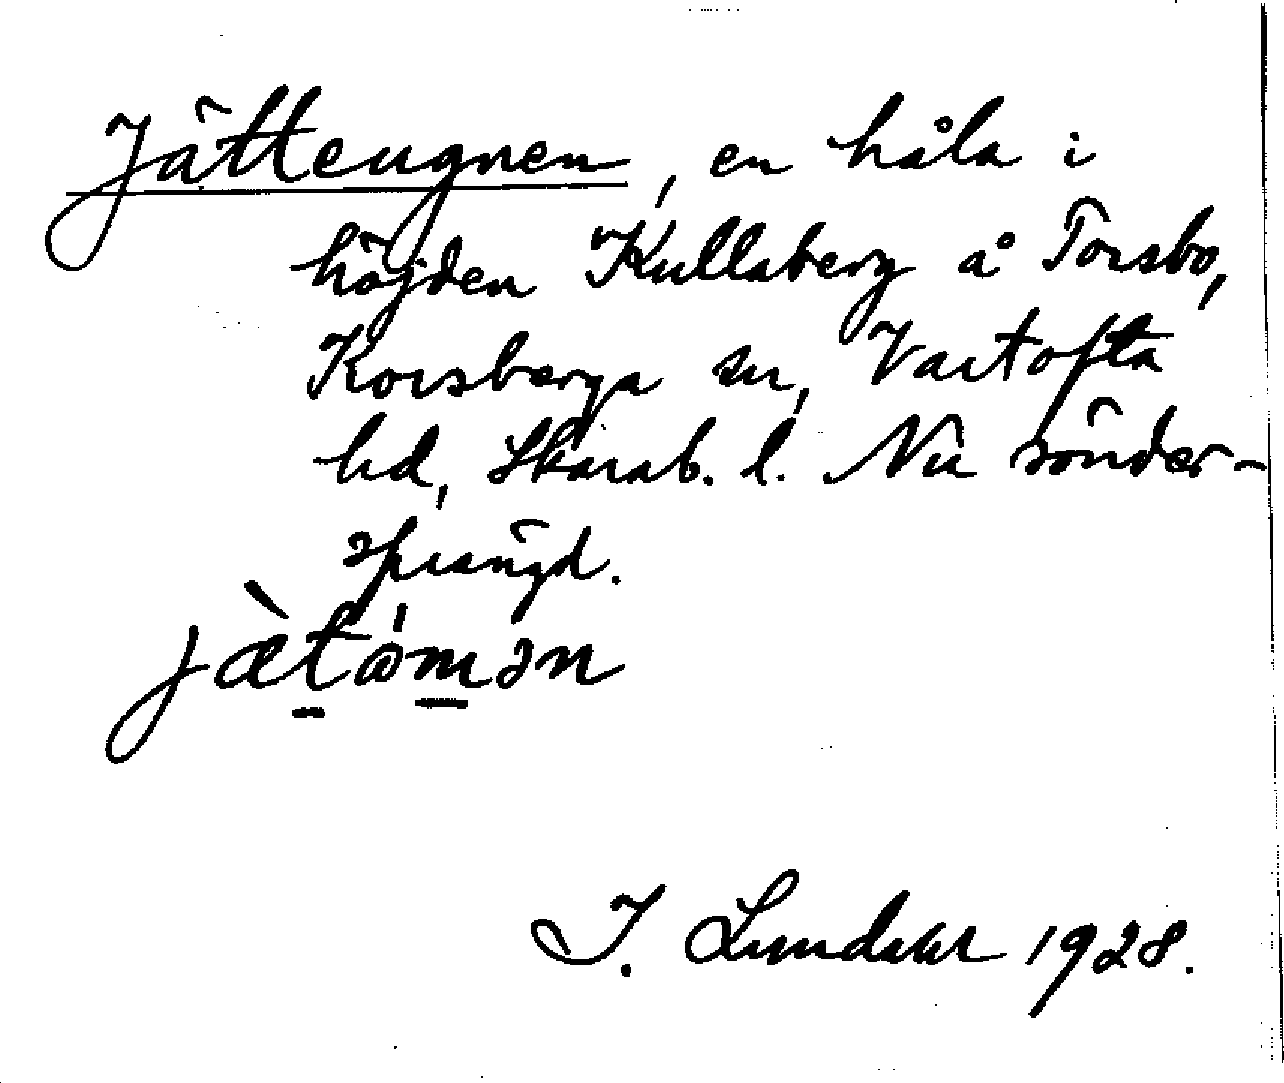 Jätteugnen, en håla i
höjden Kullaberg å Torsbo,
Korsberga sn, Vartofta
hd, Skarab. l. Nu sönder-
sprängd.
I. Lundahl 1928.